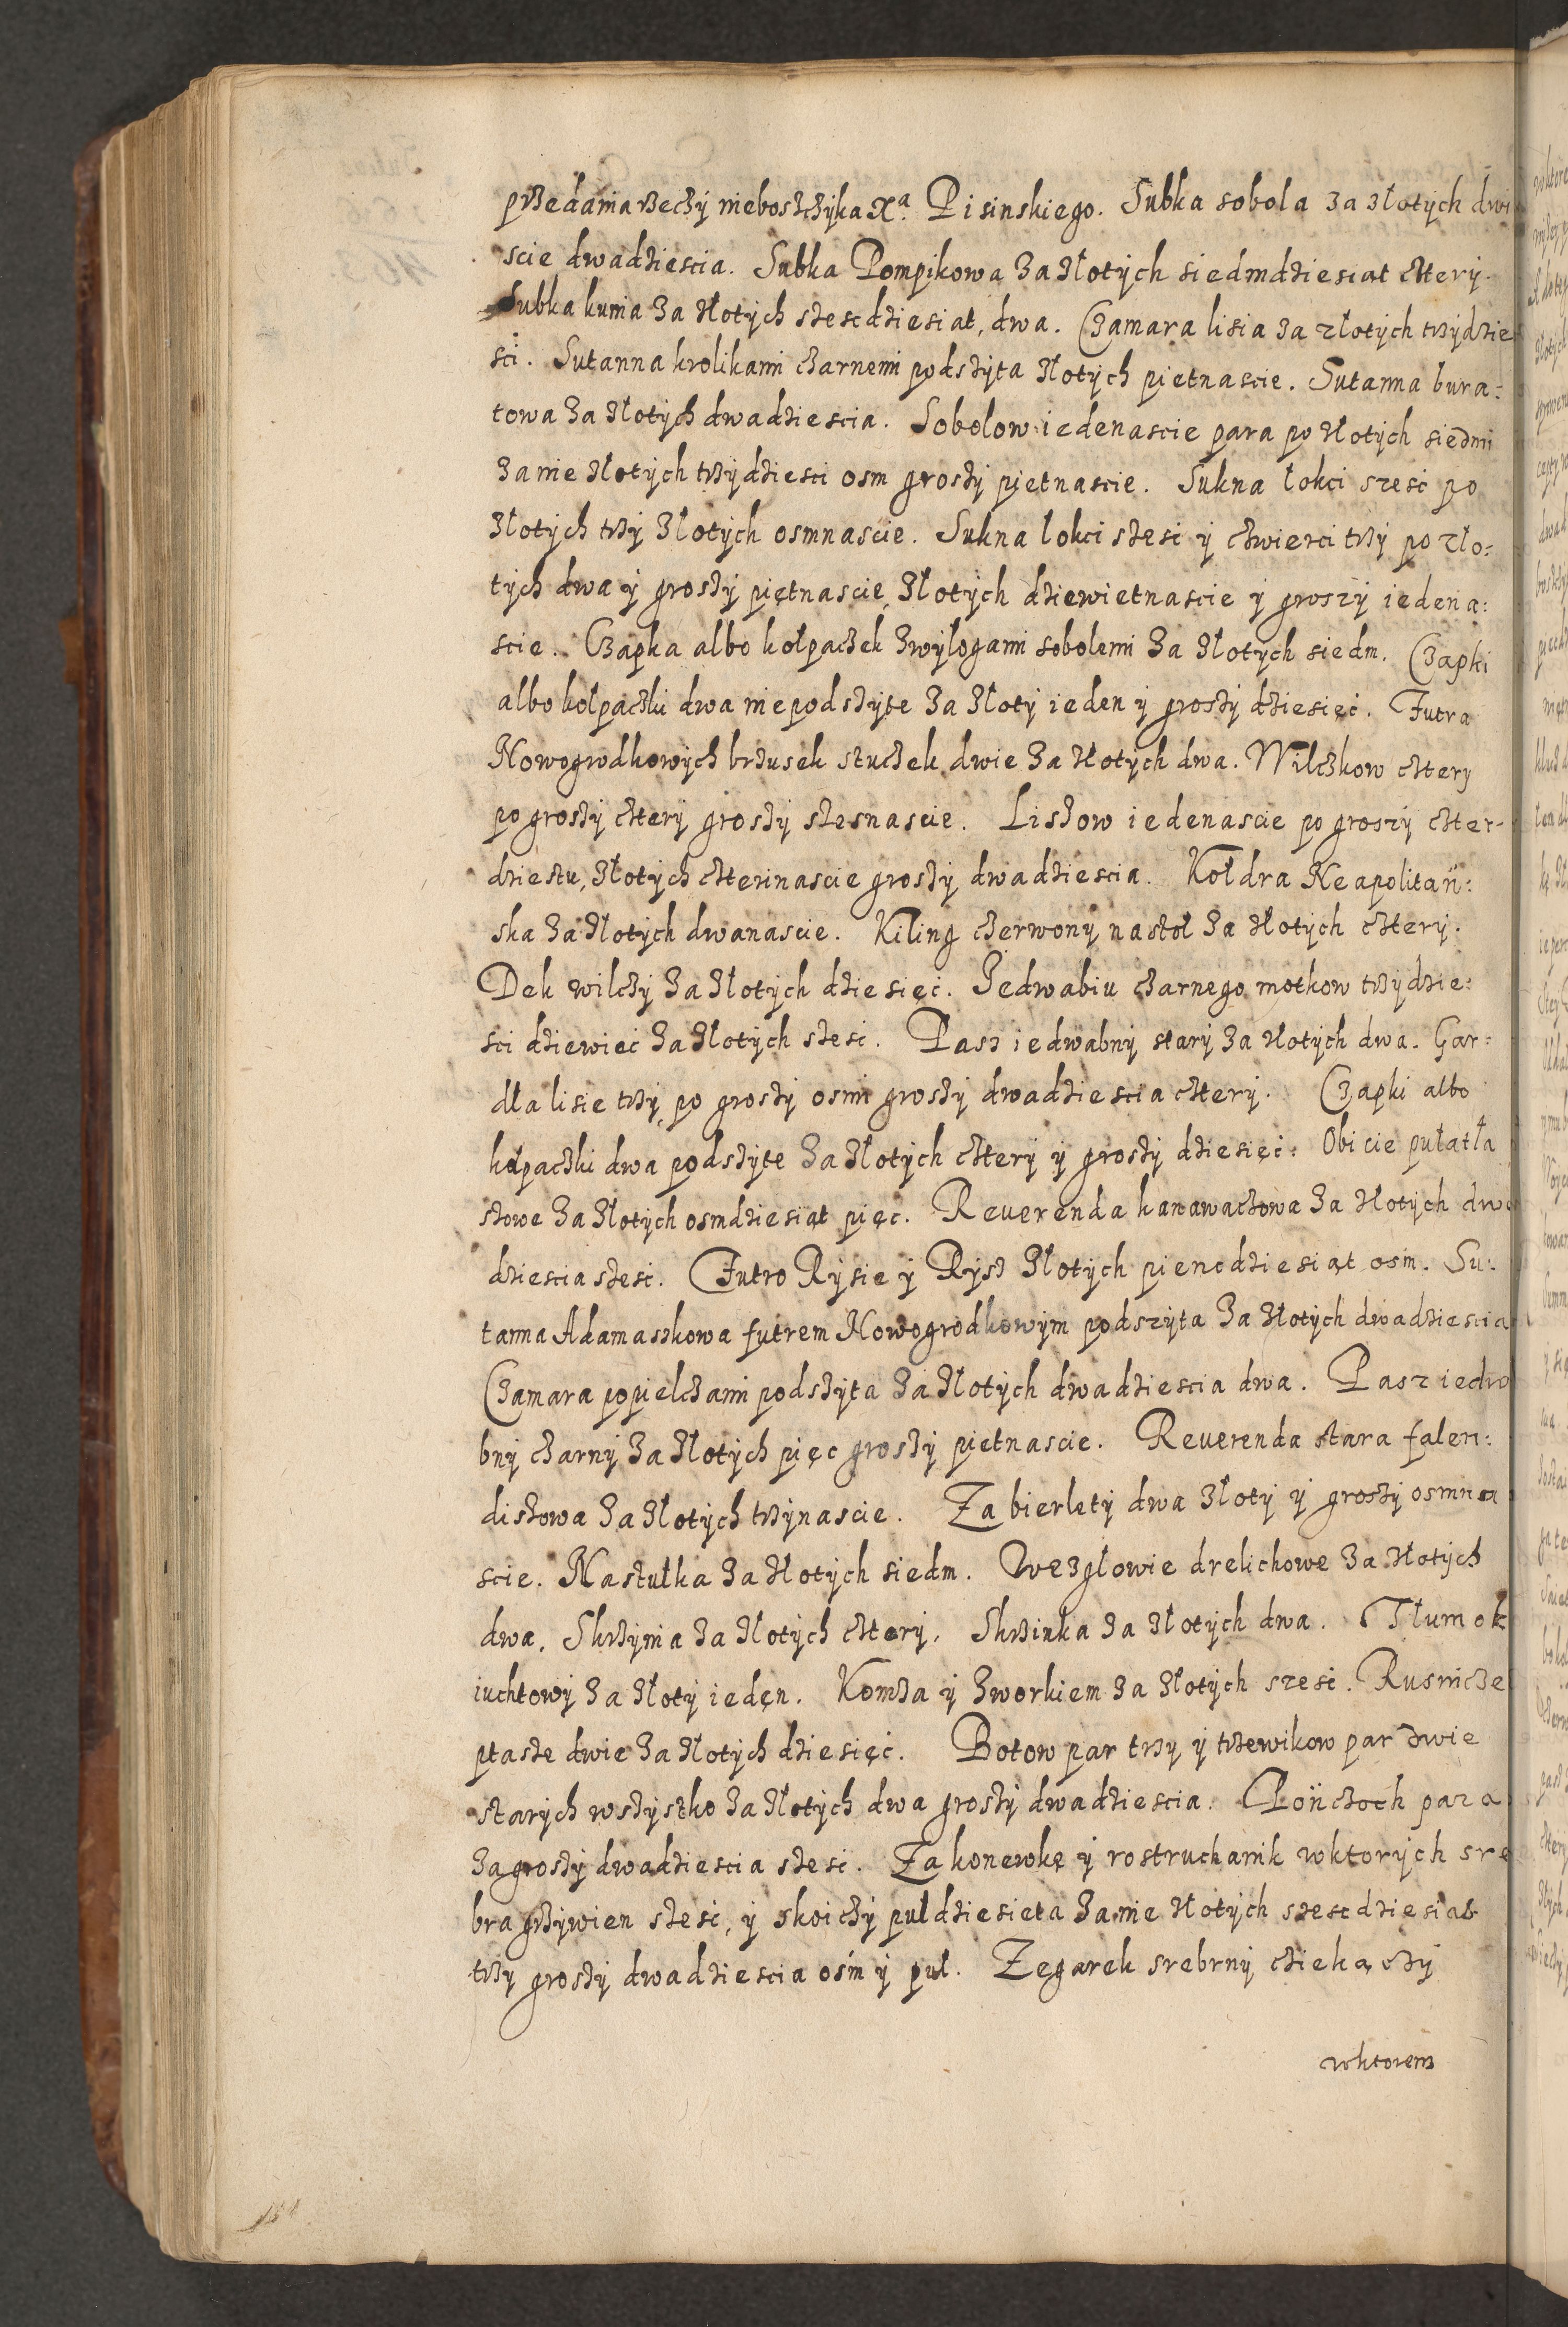 przedania rzeczy nieboszczyka Xa. Pisinskiego. Subka sobola za złotych dwi
scie dwadziescia. Subka Pompikowa za złotych siedmdziesiat cztery.
Subka kunia za złotych szescdziesiat, dwa. Czamara lisia za złotych trzydzie
sci. Sutanna krolikami czarnemi podszyta złotych pietnascie. Sutanna bura=
towa za złotych dwadziescia. Sobolow iedenascie para po złotych siedmi
za nie złotych trzydziesci osm groszy pietnascie. Sukna łokci szesc po
złotych trzy złotych osmnascie. Sukna lokci szesc y cwierci trzy po zło=
tych dwa y groszy piętnascie, złotych dziewietnascie y groszy iedena=
scie. Czapka albo kołpaczek z wyłogami sobolemi za złotych siedm. Czapki
albo kołpaczki dwa niepodszyte za złoty ieden y groszy dziesięc. Futra
Nowogrodkowych brzusek stuczek dwie za złotych dwa. Wilczkow cztery
po groszy cztery groszy szesnascie. Liszow iedenascie po groszy czter-
dziestu, złotych czterinascie groszy dwadziescia. Kołdra Neapolitań=
ska za złotych dwanascie. Kiling czerwony na stoł za złotych cztery.
Dek wilczy za złotych dziesięć. Jedwabiu czarnego motkow trzydzie=
sci dziewiec za złotych szesc. Pasz iedwabny stary za złotych dwa. Gar=
dła lisie trzy, po groszy osmi groszy dwadziescia cztery. Czapki albo
kołpaczki dwa podszyte za złotych cztery y groszy dziesięć. Obicie pułatła
szowe za złotych osmdziesiąt pięc. Reuerenda kanawaczowa za złotych dwa
dziescia szesc. Futro Rysie y Rysz złotych piencdziesiąt osm. Su=
tanna Adamaszkowa futrem Nowogrodkowym podszyta za złotych dwadziescia
Czamara popielczami podszyta za złotych dwadziescia dwa. Pasz iedwa
bny czarny za złotych pięc groszy pietnascie. Reuerenda stara falen=
diszowa za złotych trzynascie. Za bierlety dwa złoty y groszy osmna
scie. Naszułka za złotych siedm. Wezgłowie drelichowe za złotych
dwa, Skrzynia za złotych cztery, Skrzinka za złotych dwa. Tłumok
iuchtowy za złoty iedęn. Komza y z workiem za złotych szesc. Rusnicze
ptasze dwie za złotych dziesięć. Botow par trzy y trzewikow par dwie
starych wszystko za złotych dwa groszy dwadziescia. Pończoch para
za groszy dwadziescia szesc. Za konewkę y rostrucharnik wktorych sre
bra grzywien szesc, y skoiczy puł dziesieta za nie złotych szescdziesiat
trzy groszy dwadziescia osm y puł. Zegarek srebrny cziekączy
wktorem